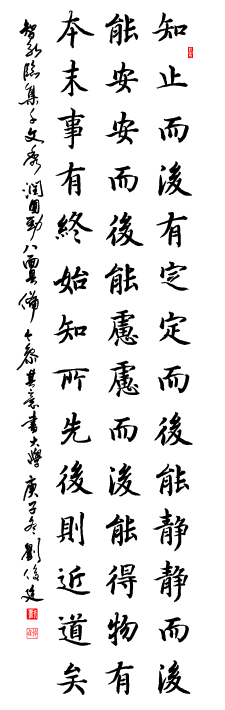 知止而後有定定而後能静静而後
能安安而後能慮慮而後能得物有
本末事有終始知所先後則近道矣
智永臨集千文秀潤圓勁八面具備今參其意書大學庚子冬劉俊廷